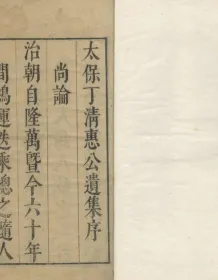 太保丁清惠公遺集序
尚論
治朝自隆萬暨今六十年
間鴻運迭乘總之隨人